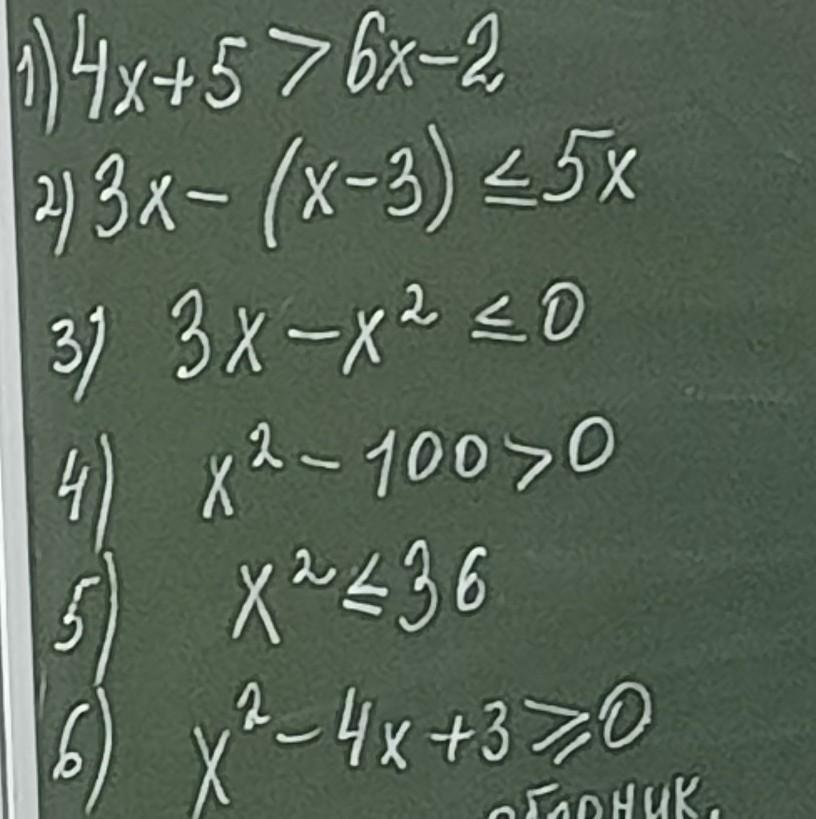 1) 4x+5 > 6x-2
2) 3x - (x-3) ≤ 5x
3) 3x - x² ≤ 0
4) x² - 100 > 0
5) x² ≤ 36
6) x² - 4x + 3 ⩾ 0